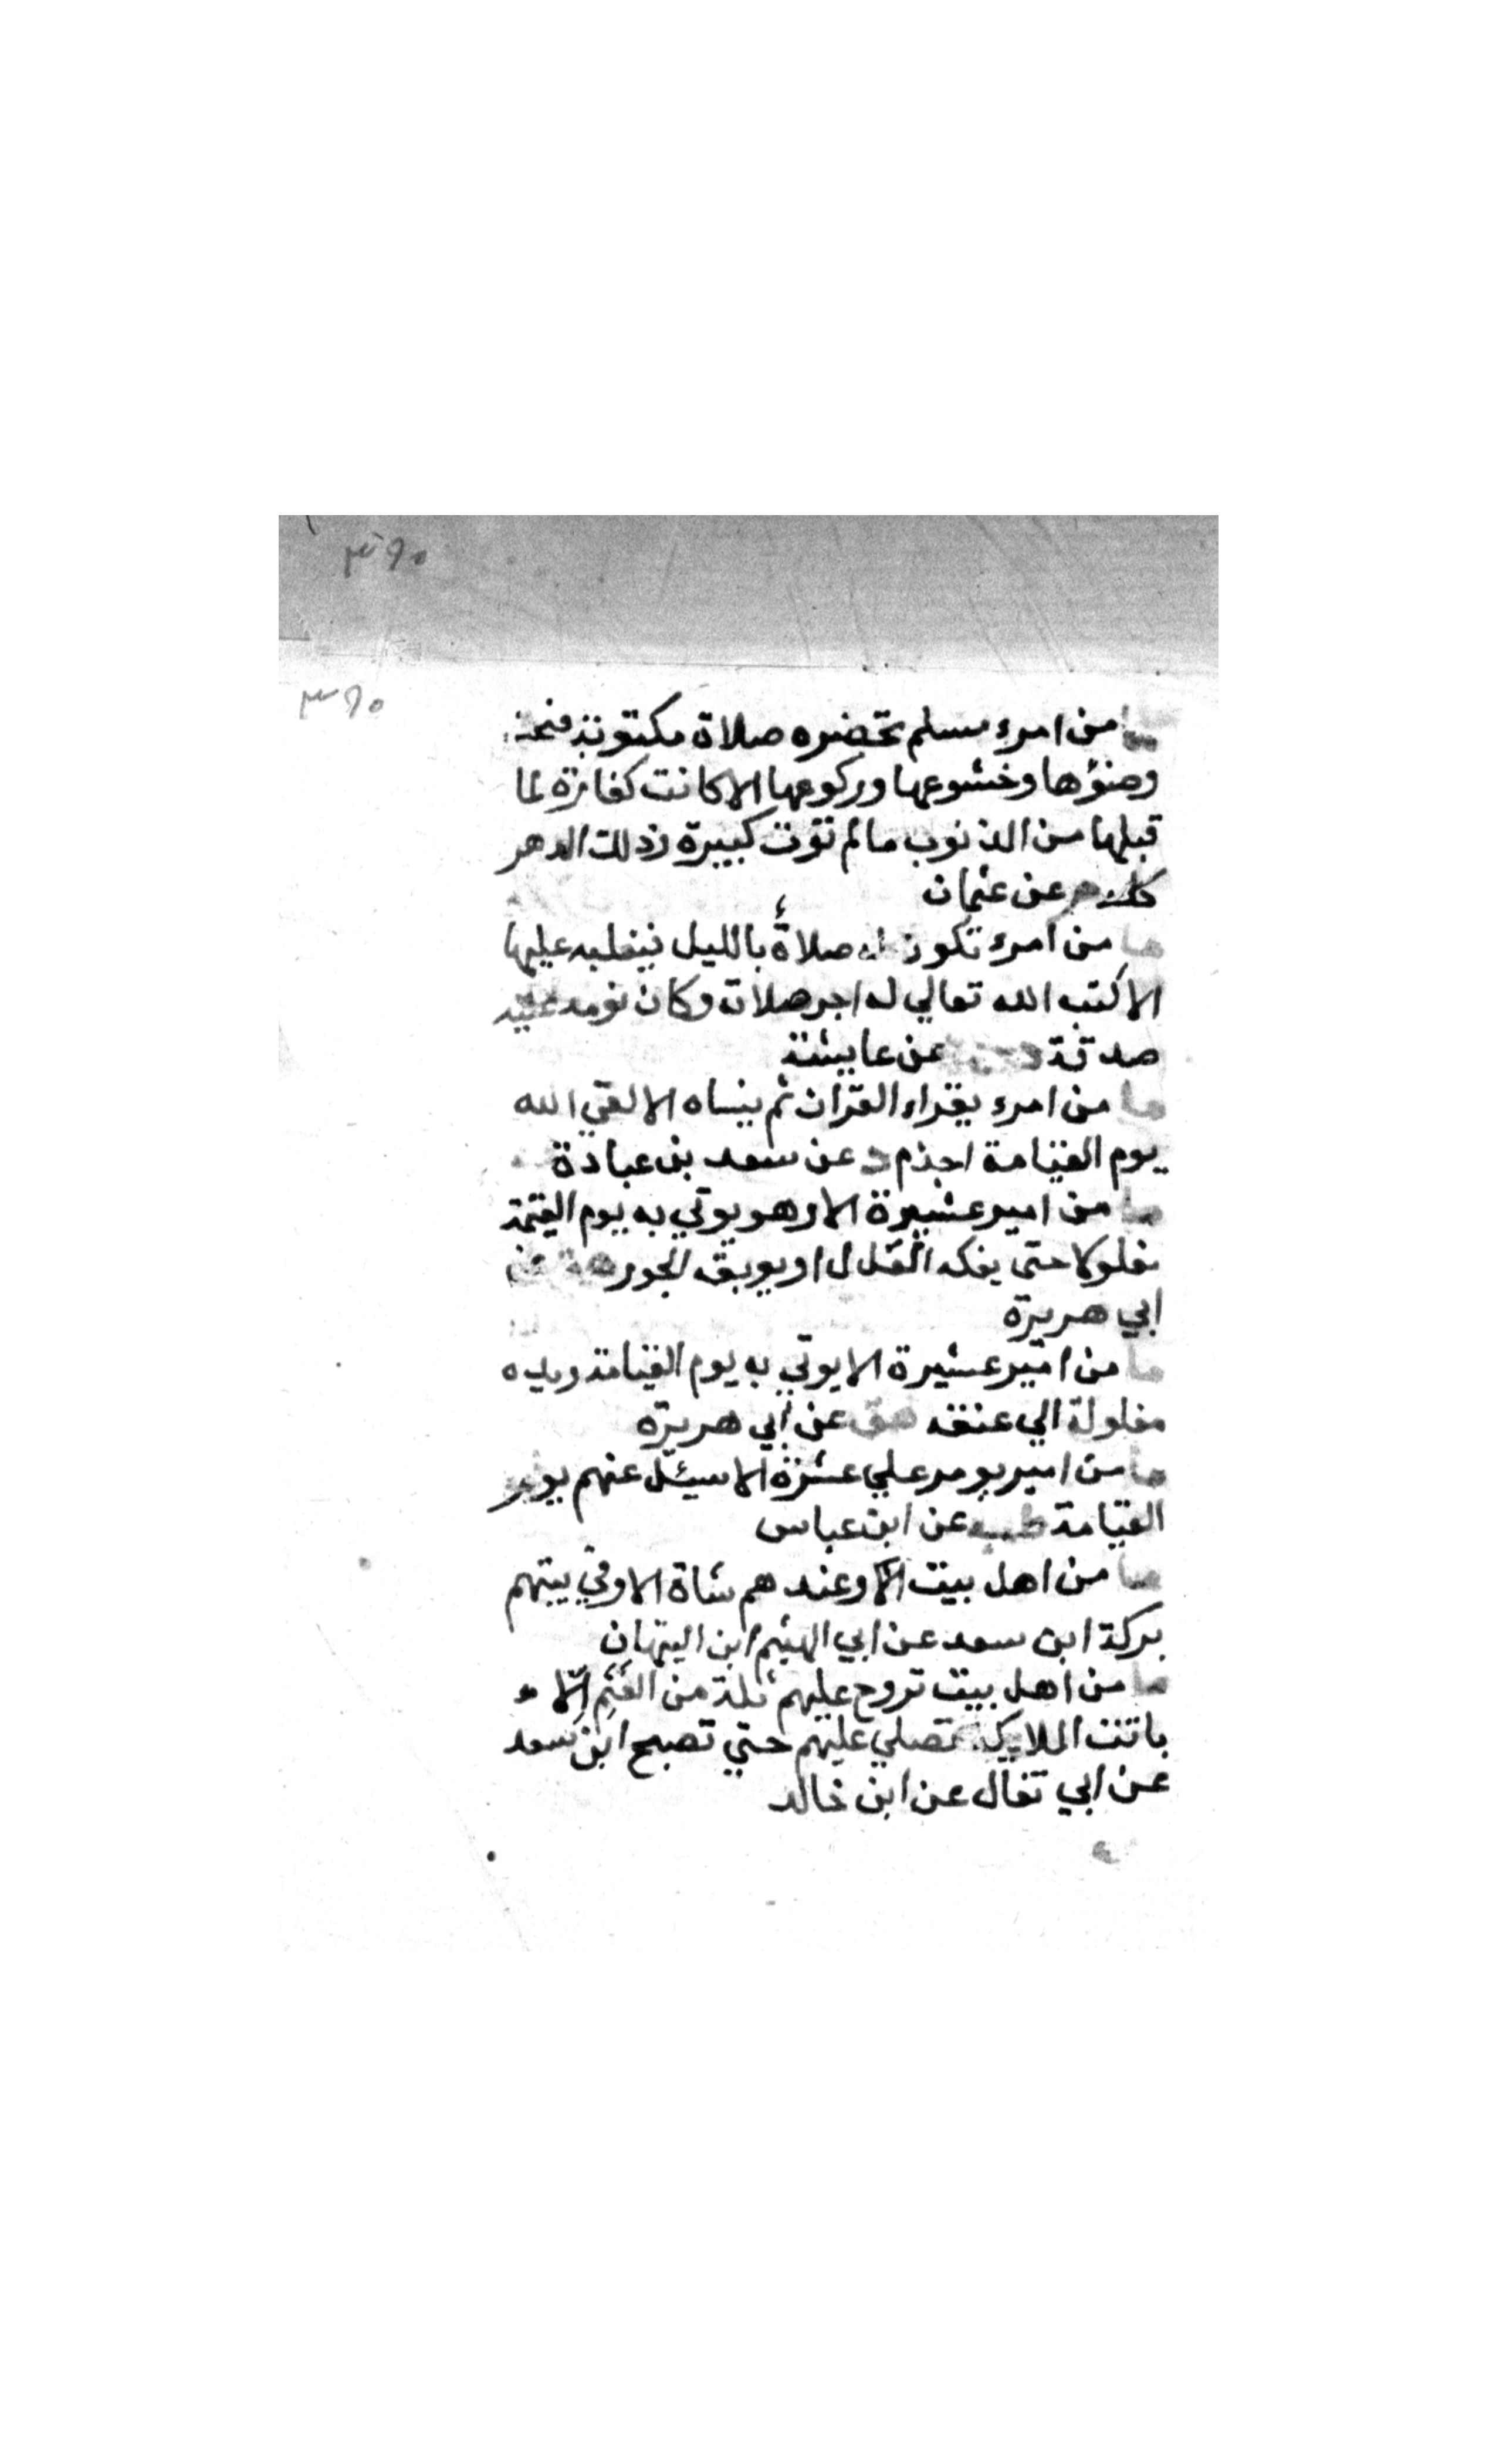 ٣٩٠
٣٩٠
ما من امرء مسلم تحضره صلاة مكتوبة فيحسن
وضوءها وخشوعها وركوعها الا كانت كفارة لما
قبلها من الذنوب مالم توت كبيرة وذلك الدهر
كله م عن عثمان
ما من امرء تكون له صلاة بالليل فيغلبه عليها
الا كتب الله تعالي له اجر صلاته وكان نومه عليه
صدقة عن عايشة
ما من امرء يقراء القران ثم ينساه الا لقي الله
يوم القيامة اجذم د عن سعد بن عبادة
ما من امير عشيرة الا وهو يوتي به يوم القيمة
مغلولا حتى يفكه العدل او يوبقه الجور هق عن
ابي هريرة
ما من امير عشيرة الا يوتي به يوم القيامة ويده
مغلولة الي عنقه هق عن ابي هريرة
ما من امير يومر علي عشرة الا سيئل عنهم يوم
القيامة طب عن ابن عباس
ما من اهل بيت الا وعندهم شاة الا وفي بيتهم
بركة ابن سعد عن ابي الهيثم ابن التيهان
ما من اهل بيت تروح عليهم ثلة من الغنم الا
باتت الملايكة تصلي عليهم حتي تصبح ابن سعد
عن ابي ثفال عن ابن خالد